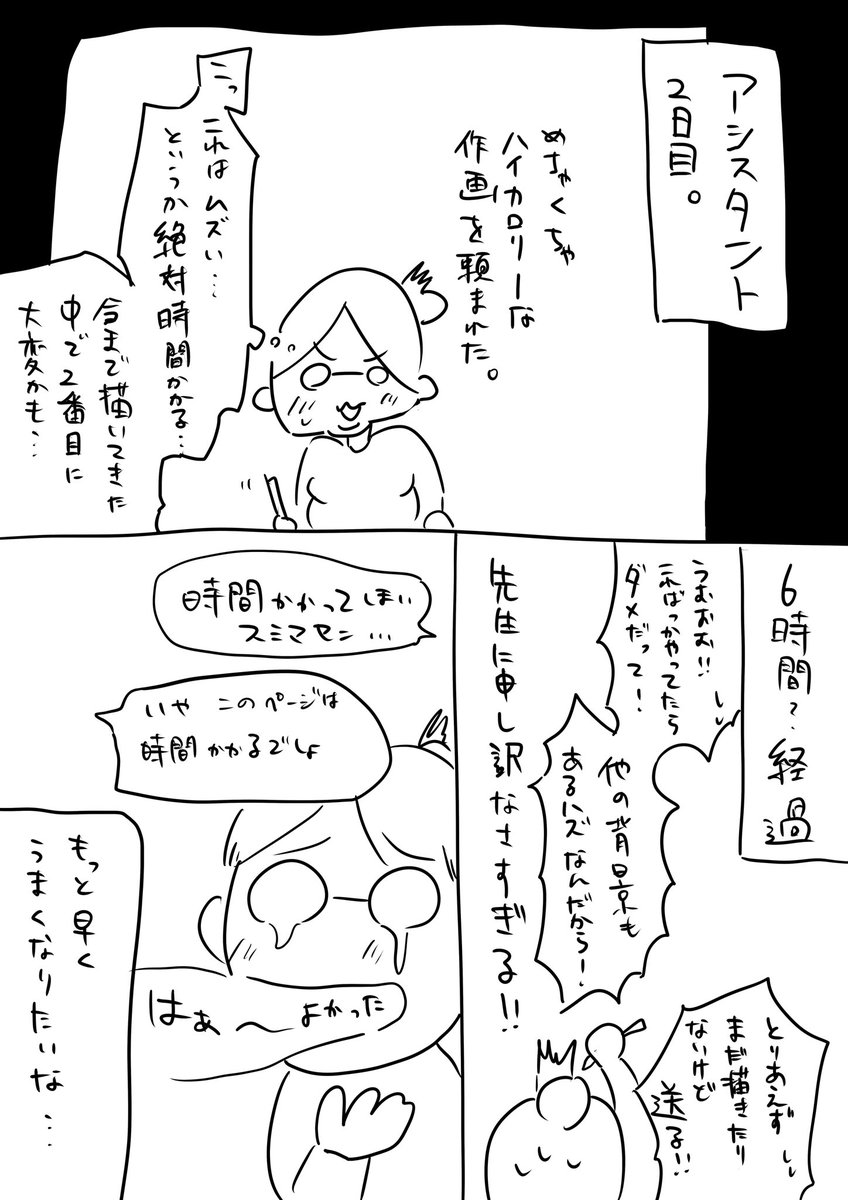 アシスタント
2日目。
めちゃくちゃ
ハイカロリーな
作画を頼まれた。
こっ
これはムズい…
というか絶対時間かかる…
今まで描いてきた
中で2番目に
大変かも…
6時間?経過
うむおお!!
こればっかやってたら
ダメだって!
他の背景も
あるハズなんだから!
先生に申し訳なさすぎる!!
とりあえず
まだ描きたり
ないけど
送る!!
時間かかってしまい
スミマセン…
いや このページは
時間かかるでしょ
はぁ〜よかった
もっと早く
うまくなりたいな…